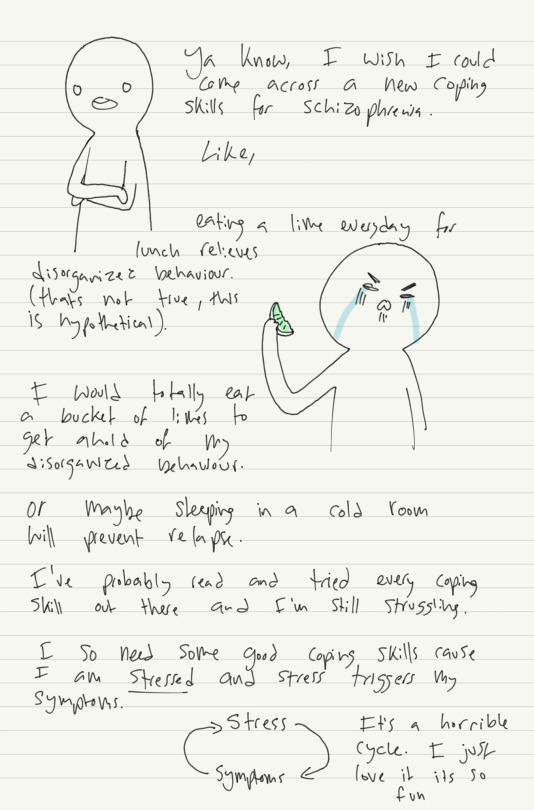 Ya know, I wish I could
come across a new coping
skills for schizophrenia.
Like,
eating a lime everyday for
lunch relieves
disorganized behaviour.
(thats not true, this
is hypothetical).
I would totally eat
a bucket of limes to
get ahold of my
disorganized behaviour.
or maybe sleeping in a cold room
will prevent relapse.
I've probably read and tried every coping
skill out there and I'm still struggling.
I so need some good coping skills cause
I am stressed and stress triggers my
symptoms.
Stress
Symptoms
It's a horrible
cycle. I just
love it its so
fun